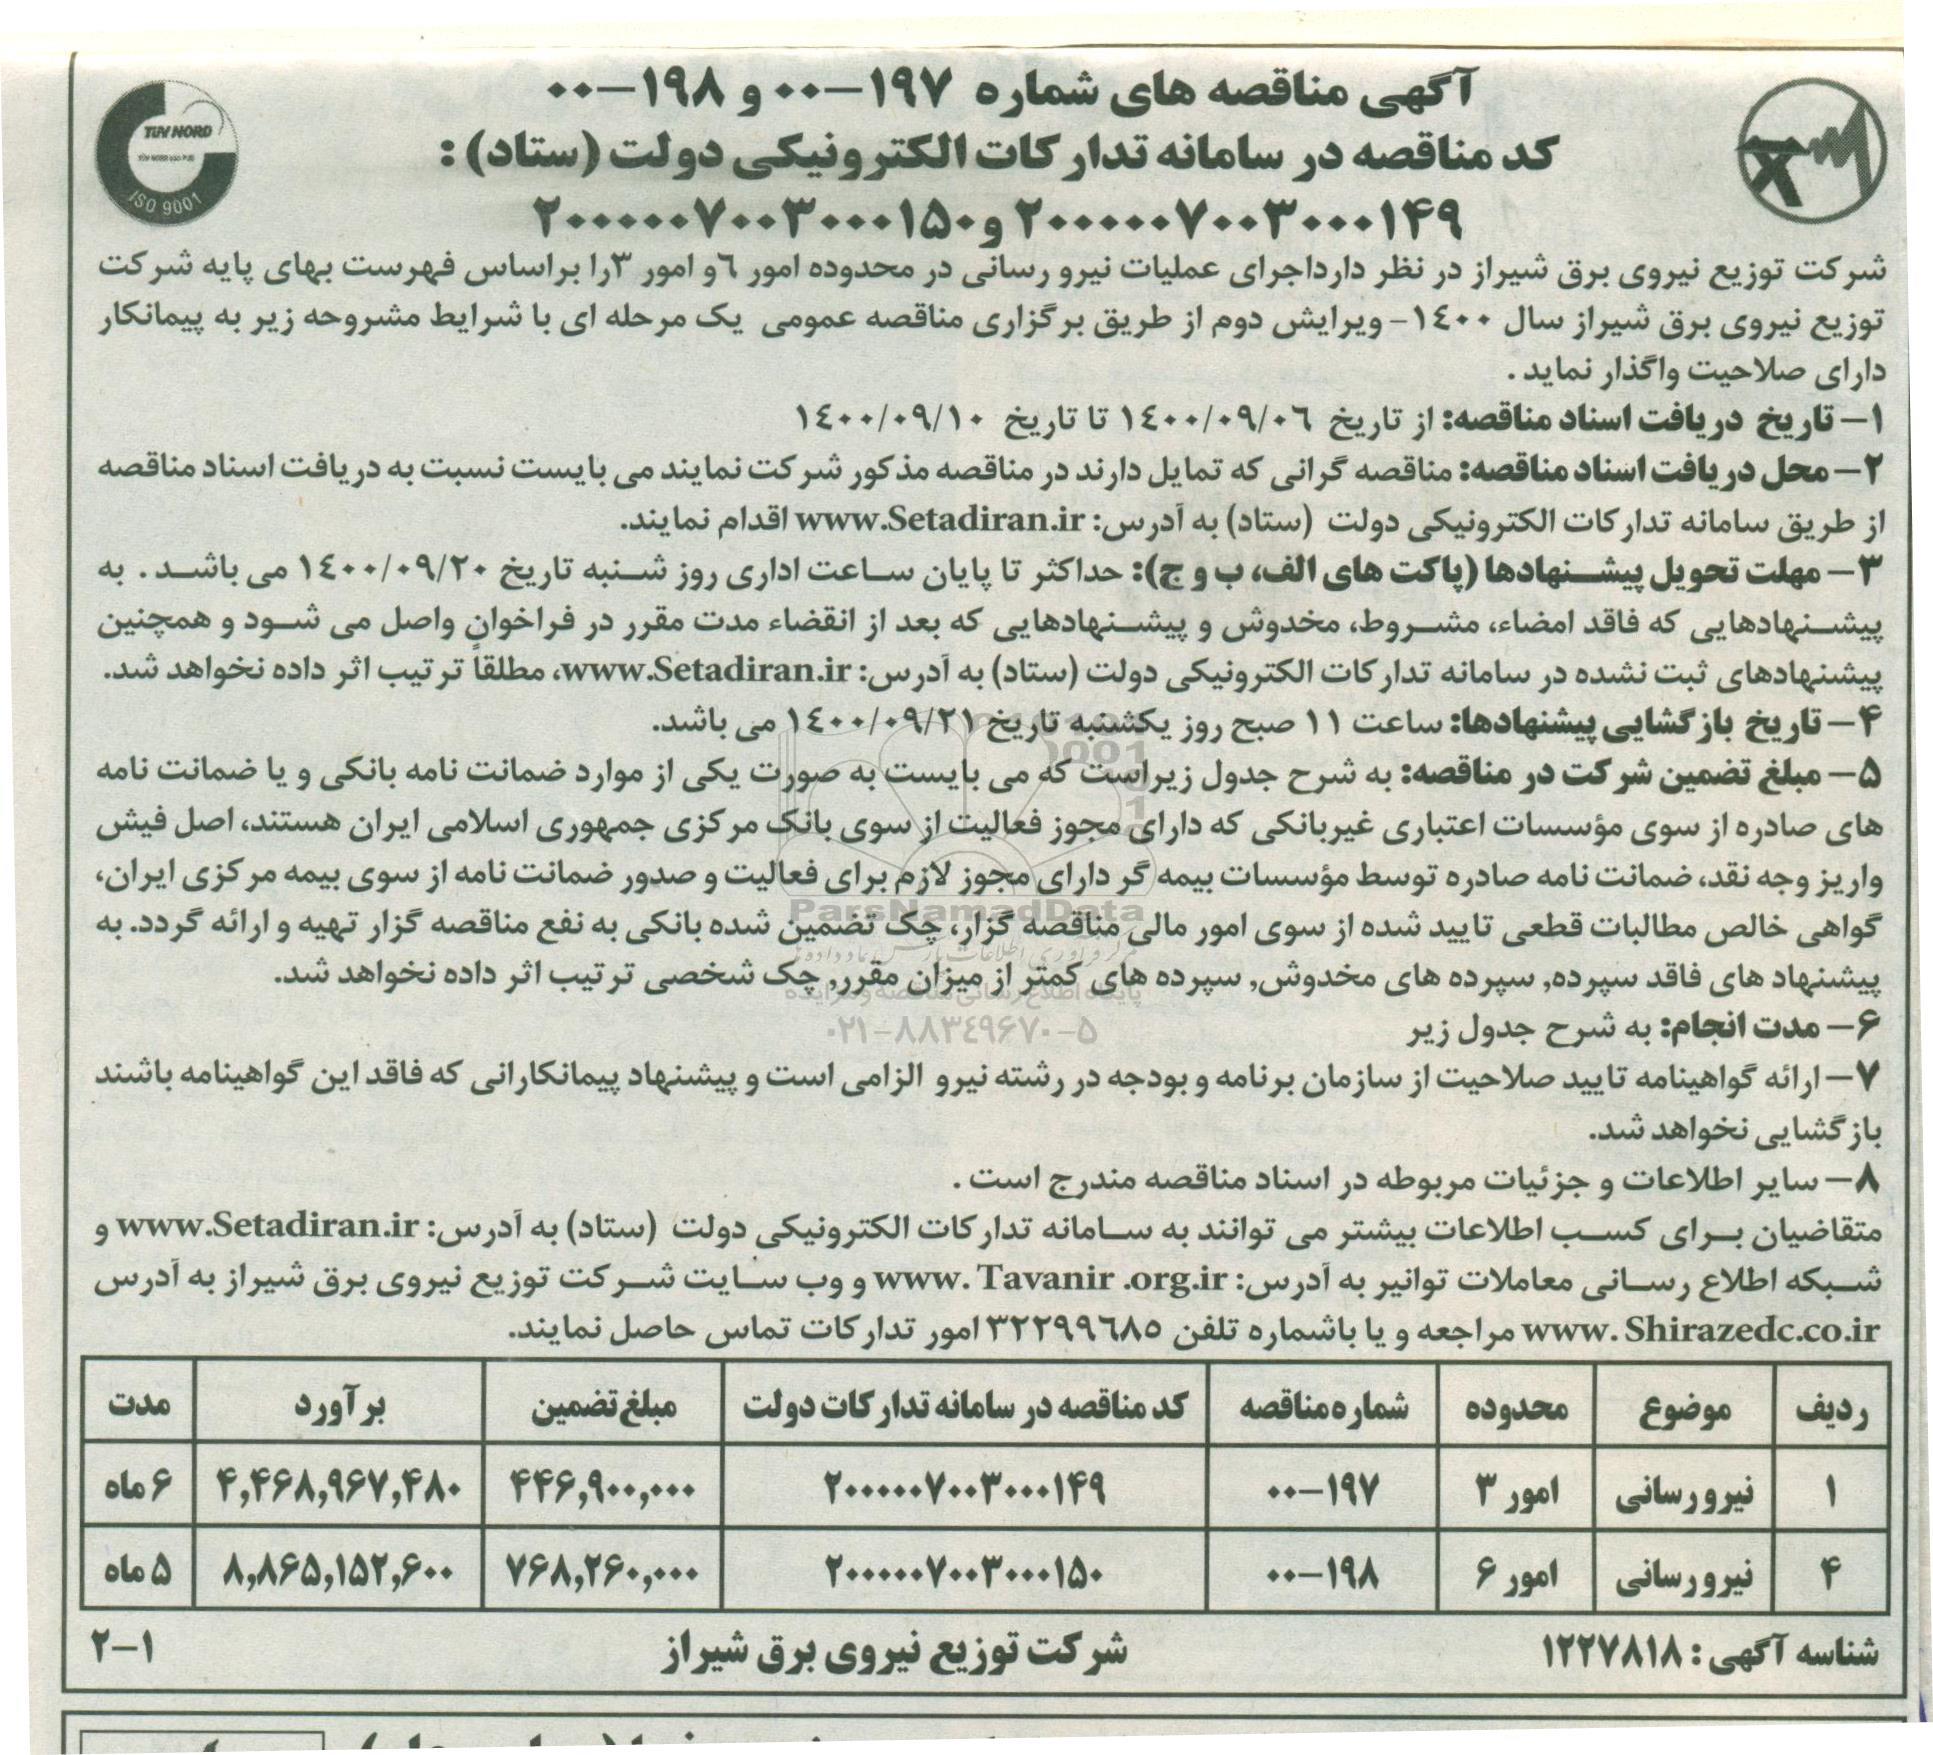 آگهی مناقصه های شماره ۱۹۷-۰۰ و ۱۹۸-۰۰
کد مناقصه در سامانه تدارکات الکترونیکی دولت (ستاد) :
۲۰۰۰۰۰۷۰۰۳۰۰۰۱۴۹ و ۲۰۰۰۰۰۷۰۰۳۰۰۰۱۵۰
TUV NORD
ISO 9001
شرکت توزیع نیروی برق شیراز در نظر دارداجرای عملیات نیرو رسانی در محدوده امور ٦و امور ۳را براساس فهرست بهای پایه شرکت
توزیع نیروی برق شیراز سال ۱٤۰۰- ویرایش دوم از طریق برگزاری مناقصه عمومی یک مرحله ای با شرایط مشروحه زیر به پیمانکار
دارای صلاحیت واگذار نماید .
۱- تاریخ دریافت اسناد مناقصه: از تاریخ ۱٤۰۰/۰۹/۰٦ تا تاریخ ۱٤۰۰/۰۹/۱۰
۲- محل دریافت اسناد مناقصه: مناقصه گرانی که تمایل دارند در مناقصه مذکور شرکت نمایند می بایست نسبت به دریافت اسناد مناقصه
از طریق سامانه تدارکات الکترونیکی دولت (ستاد) به آدرس: www.Setadiran.ir اقدام نمایند.
۳- مهلت تحویل پیشنهادها (پاکت های الف، ب و ج): حداکثر تا پایان ساعت اداری روز شنبه تاریخ ۱٤۰۰/۰۹/۲۰ می باشد . به
پیشنهادهایی که فاقد امضاء، مشروط، مخدوش و پیشنهادهایی که بعد از انقضاء مدت مقرر در فراخوان واصل می شود و همچنین
پیشنهادهای ثبت نشده در سامانه تدارکات الکترونیکی دولت (ستاد) به آدرس: www.Setadiran.ir، مطلقاً ترتیب اثر داده نخواهد شد.
۴- تاریخ بازگشایی پیشنهادها: ساعت ۱۱ صبح روز یکشنبه تاریخ ۱٤۰۰/۰۹/۲۱ می باشد.
۵- مبلغ تضمین شرکت در مناقصه: به شرح جدول زیراست که می بایست به صورت یکی از موارد ضمانت نامه بانکی و یا ضمانت نامه
های صادره از سوی مؤسسات اعتباری غیربانکی که دارای مجوز فعالیت از سوی بانک مرکزی جمهوری اسلامی ایران هستند، اصل فیش
واریز وجه نقد، ضمانت نامه صادره توسط مؤسسات بیمه گر دارای مجوز لازم برای فعالیت و صدور ضمانت نامه از سوی بیمه مرکزی ایران،
گواهی خالص مطالبات قطعی تایید شده از سوی امور مالی مناقصه گزار، چک تضمین شده بانکی به نفع مناقصه گزار تهیه و ارائه گردد. به
پیشنهاد های فاقد سپرده, سپرده های مخدوش, سپرده های کمتر از میزان مقرر, چک شخصی ترتیب اثر داده نخواهد شد.
۶- مدت انجام: به شرح جدول زیر
۷- ارائه گواهینامه تایید صلاحیت از سازمان برنامه و بودجه در رشته نیرو الزامی است و پیشنهاد پیمانکارانی که فاقد این گواهینامه باشند
بازگشایی نخواهد شد.
۸- سایر اطلاعات و جزئیات مربوطه در اسناد مناقصه مندرج است .
متقاضیان برای کسب اطلاعات بیشتر می توانند به سامانه تدارکات الکترونیکی دولت (ستاد) به آدرس: www.Setadiran.ir و
شبکه اطلاع رسانی معاملات توانیر به آدرس: www. Tavanir .org.ir و وب سایت شرکت توزیع نیروی برق شیراز به آدرس
www. Shirazedc.co.ir مراجعه و یا باشماره تلفن ۳۲۲۹۹٦۸۵ امور تدارکات تماس حاصل نمایند.
ParsNamadData
پایگاه اطلاع رسانی مناقصه و مزایده
۰۲۱-۸۸۳۴۹۶۷۰-۵
ردیف موضوع محدوده شماره مناقصه کد مناقصه در سامانه تدارکات دولت مبلغ تضمین برآورد مدت
۱ نیرو رسانی امور ۳ ۱۹۷-۰۰ ۲۰۰۰۰۰۷۰۰۳۰۰۰۱۴۹ ۴۴۶,۹۰۰,۰۰۰ ۴,۴۶۸,۹۶۷,۴۸۰ ۶ ماه
۴ نیرو رسانی امور ۶ ۱۹۸-۰۰ ۲۰۰۰۰۰۷۰۰۳۰۰۰۱۵۰ ۷۶۸,۲۶۰,۰۰۰ ۸,۸۶۵,۱۵۲,۶۰۰ ۵ ماه
شناسه آگهی : ۱۲۲۷۸۱۸ شرکت توزیع نیروی برق شیراز ۱-۲